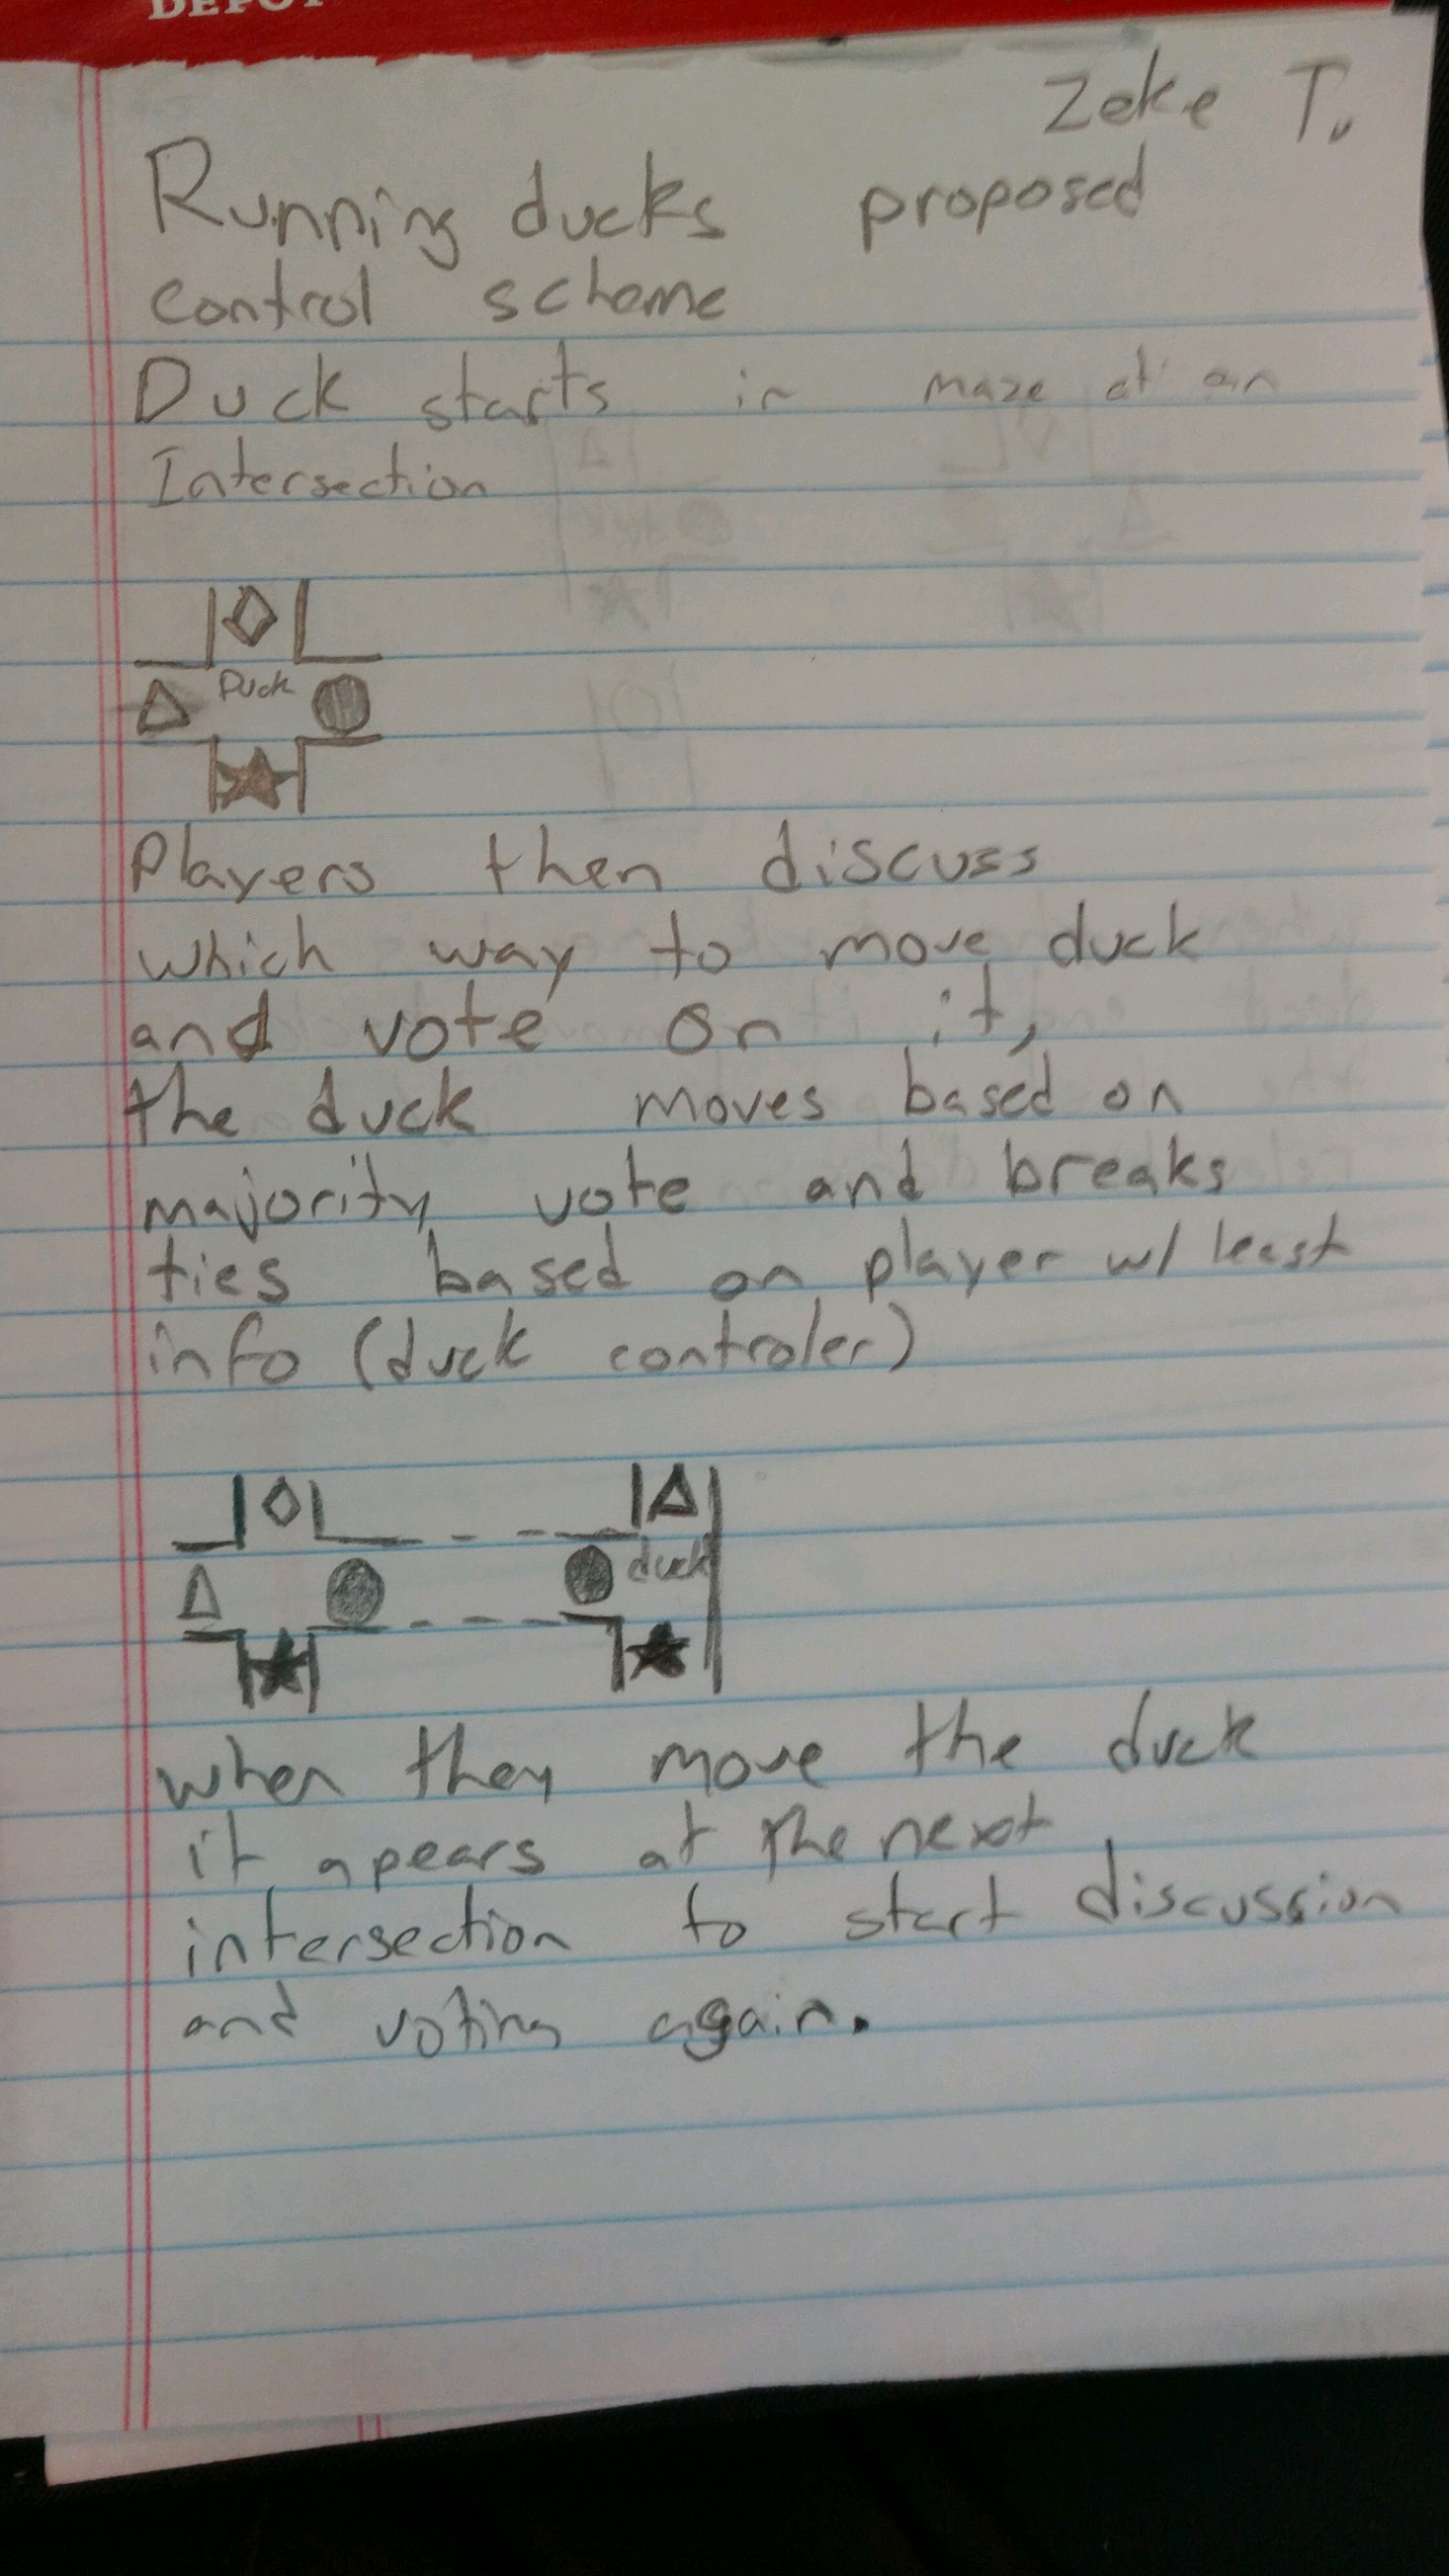 DEPOT
Zeke T.
Running ducks proposed
control scheme
Duck starts in maze at an
Intersection
Duck
Players then discuss
which way to move duck
and vote on it,
the duck moves based on
majority vote and breaks
ties based on player w/ least
info (duck controler)
duck
when they move the duck
it apears at the next
intersection to start discussion
and voting again.